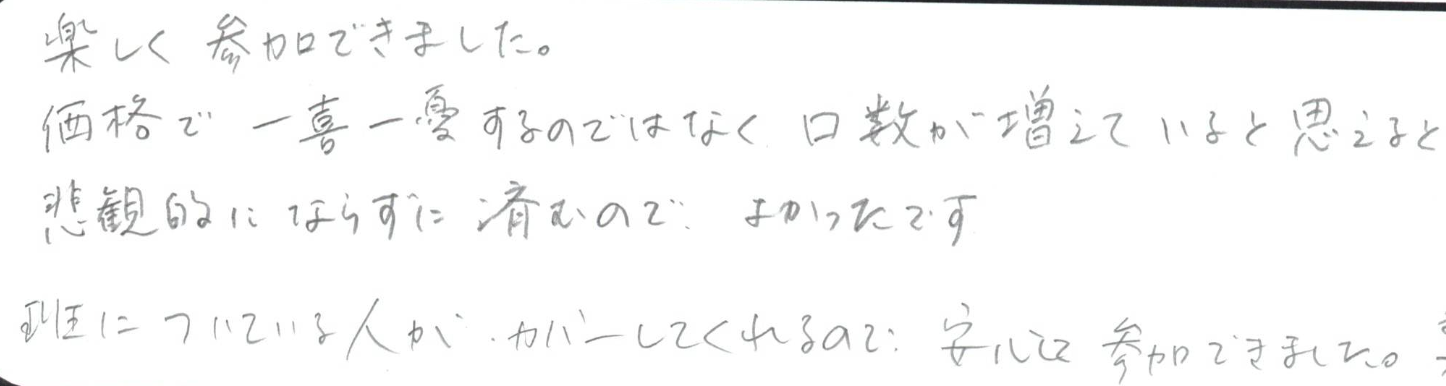 楽しく参加できました。
価格で一喜一憂するのではなく口数が増えていると思えると
悲観的にならずに済むので、よかったです
班についている人がカバーしてくれるので、安心して参加できました。